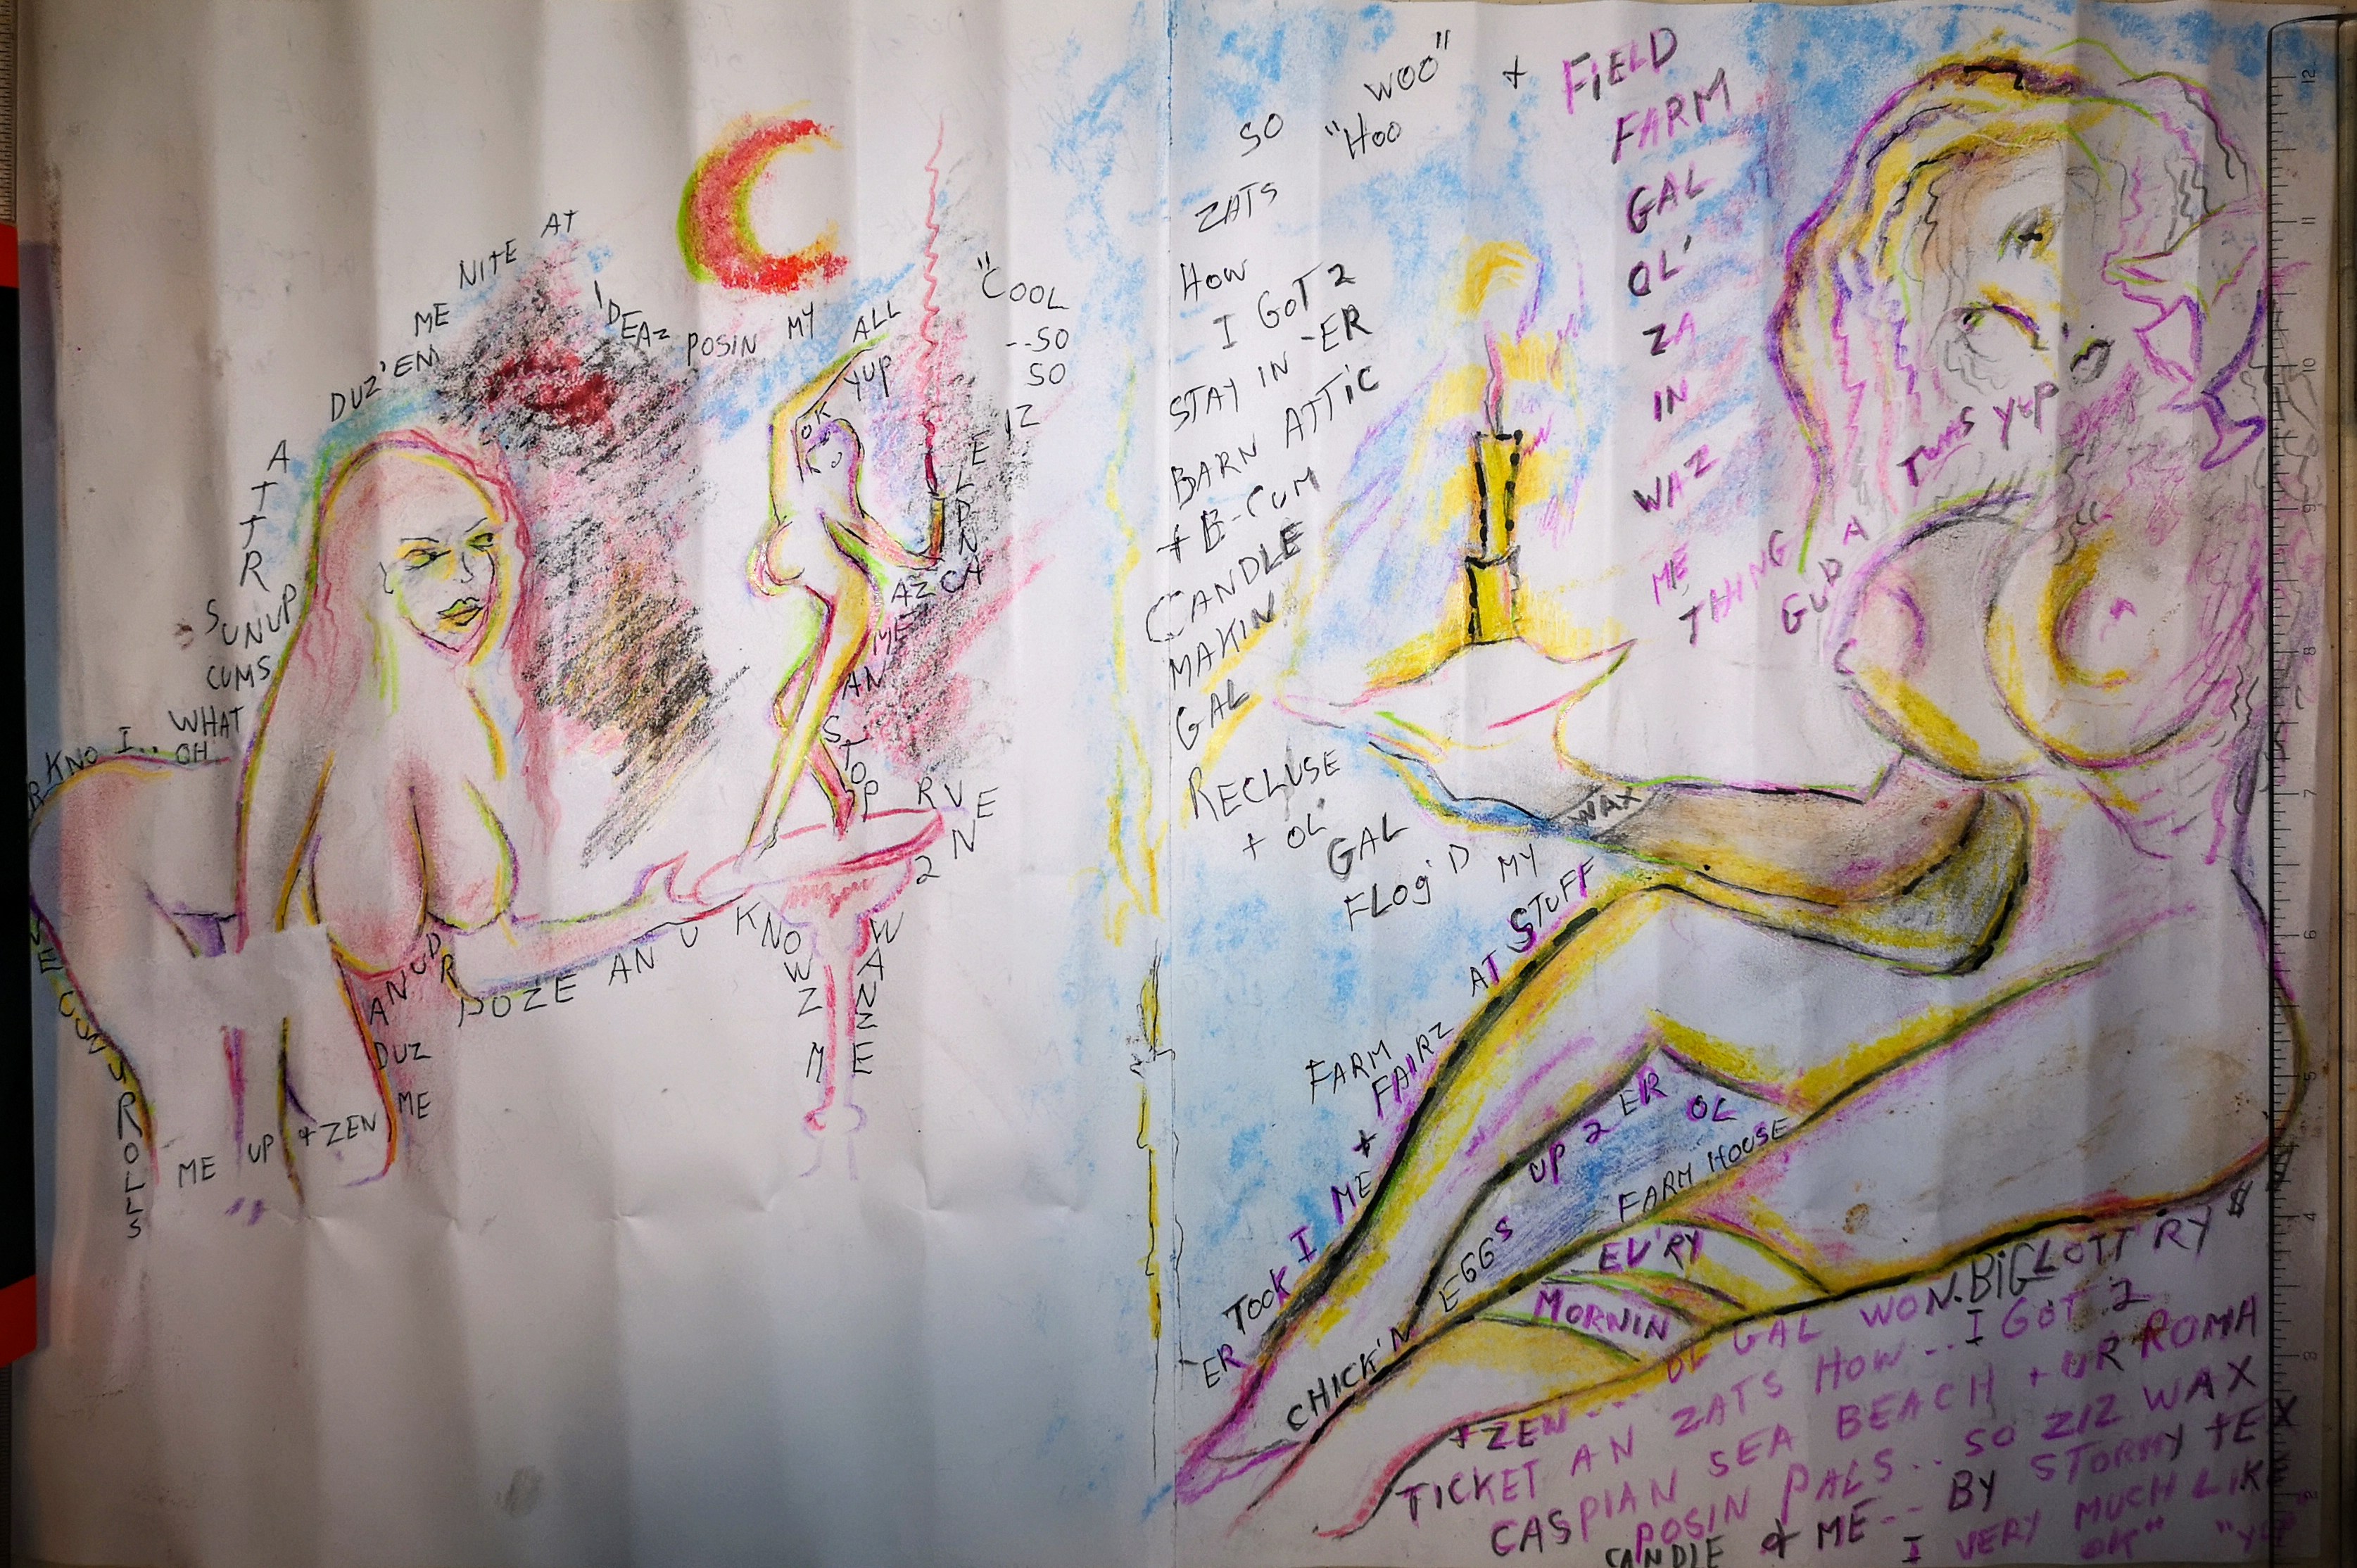 R KNO I.. WHAT
OH
CUMS
SUNUP
ATTR
DUZ'EM
ME NITE AT
IDEAZ POSIN MY ALL
YUP
OK
"COOL
--SO
SO
IZ
AZ CANDLE
ME
AN
STOPP
RVE
2 N
WANZE
KNOWZ M
POZE AN U
AN UDR
DUZ
ME
ME UP + ZEN
ROLLS
SO "HOO WOO"
ZATS
HOW
I GOT 2
STAY IN -ER
BARN ATTIC
+ B-CUM
CANDLE
MAKIN
GAL
RECLUSE
+ OL'
GAL
FLOG'D MY
WAX
STUFF
AT
FARM
FAIRZ
+
ME
I
TOOK
ER
CHICK'N
EGGS
UP 2 ER OL
FARM HOUSE
EV'RY
MORNIN
+ FIELD
FARM
GAL
OL'
ZA
IN
WAZ
ME
THING
GUD A
TWAS YUP
+ ZEN --- OL GAL WON.BIG LOTT'RY $
TICKET AN ZATS HOW.. I GOT 2
CASPIAN SEA BEACH + UR ROMA
POSIN PALS.. SO ZIZ WAX
CANDLE & ME -- BY STORMY TEX
I VERY MUCH LIKE
OK"